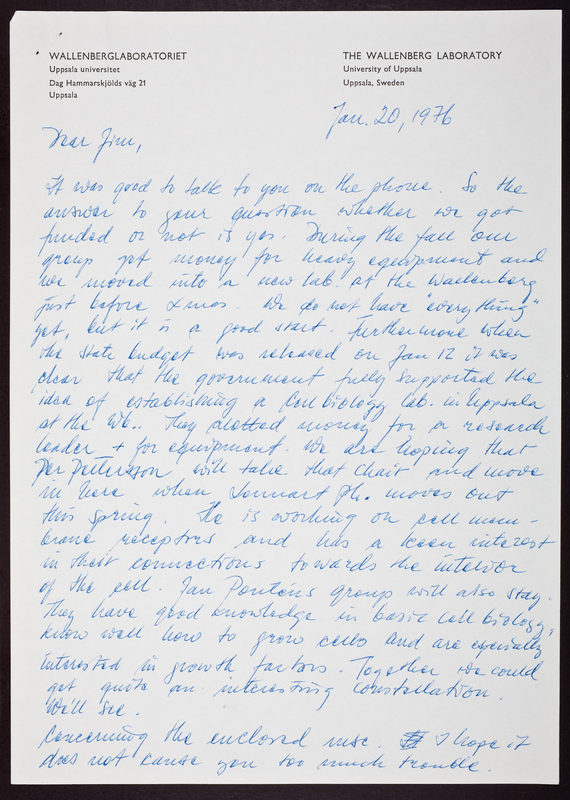 WALLENBERGLABORATORIET
Uppsala universitet
Dag Hammarskjölds väg 21
Uppsala
THE WALLENBERG LABORATORY
University of Uppsala
Uppsala, Sweden
Jan. 20, 1976
Dear Jim,
It was good to talk to you on the phone. So the
answer to your question whether we got
funded or not is yes. During the fall our
group got money for heavy equipment and
we moved into a new lab. at the Wallenberg
just before Xmas. We do not have "everything"
yet, but it is a good start. Furthermore when
the state budget was released on Jan 12 it was
clear that the government fully supported the
idea of establishing a Cell biology lab. in Uppsala
at the Wb.. They alotted money for a research
leader + for equipment. We are hoping that
Per Petterson will take that chair and move
in here when Lennart Ph. moves out
this spring. He is working on cell mem-
brane receptors and has a keen interest
in their connections towards the interior
of the cell. Jan Ponténs group will also stay.
They have good knowledge in basic cell biology,
know well how to grow cells and are especially
interested in growth factors. Together we could
get quite an interesting constellation.
We'll see.
Concerning the enclosed msc. I hope it
does not cause you too much trouble.